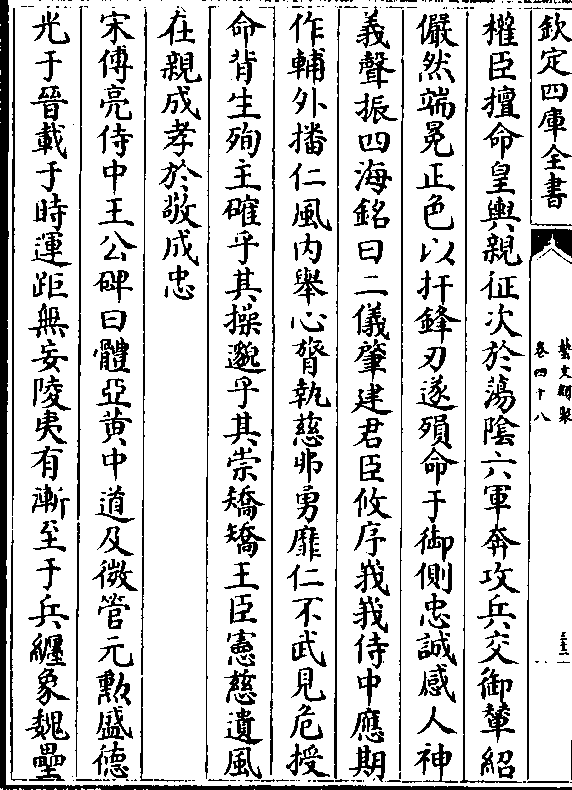 欽定四庫全書
藝文類聚
卷四十八
三十三
權臣擅命皇輿親征次於蕩陰六軍奔攻兵交御輦紹
儼然端冕正色以扞鋒刃遂殞命于御側忠誠感人神
義聲振四海銘曰二儀肇建君臣攸序我我侍中應期
作輔外播仁風内舉心膂執慈非勇靡仁不武見危授
命背生殉主確乎其操邈乎其崇矯矯王臣憲慈遺風
在親成孝於敬成忠
宋傅亮侍中王公碑曰體亞黄中道及微管元勲盛德
光于晉載于時運距無妄陵夷有漸至于兵纒象魏壘